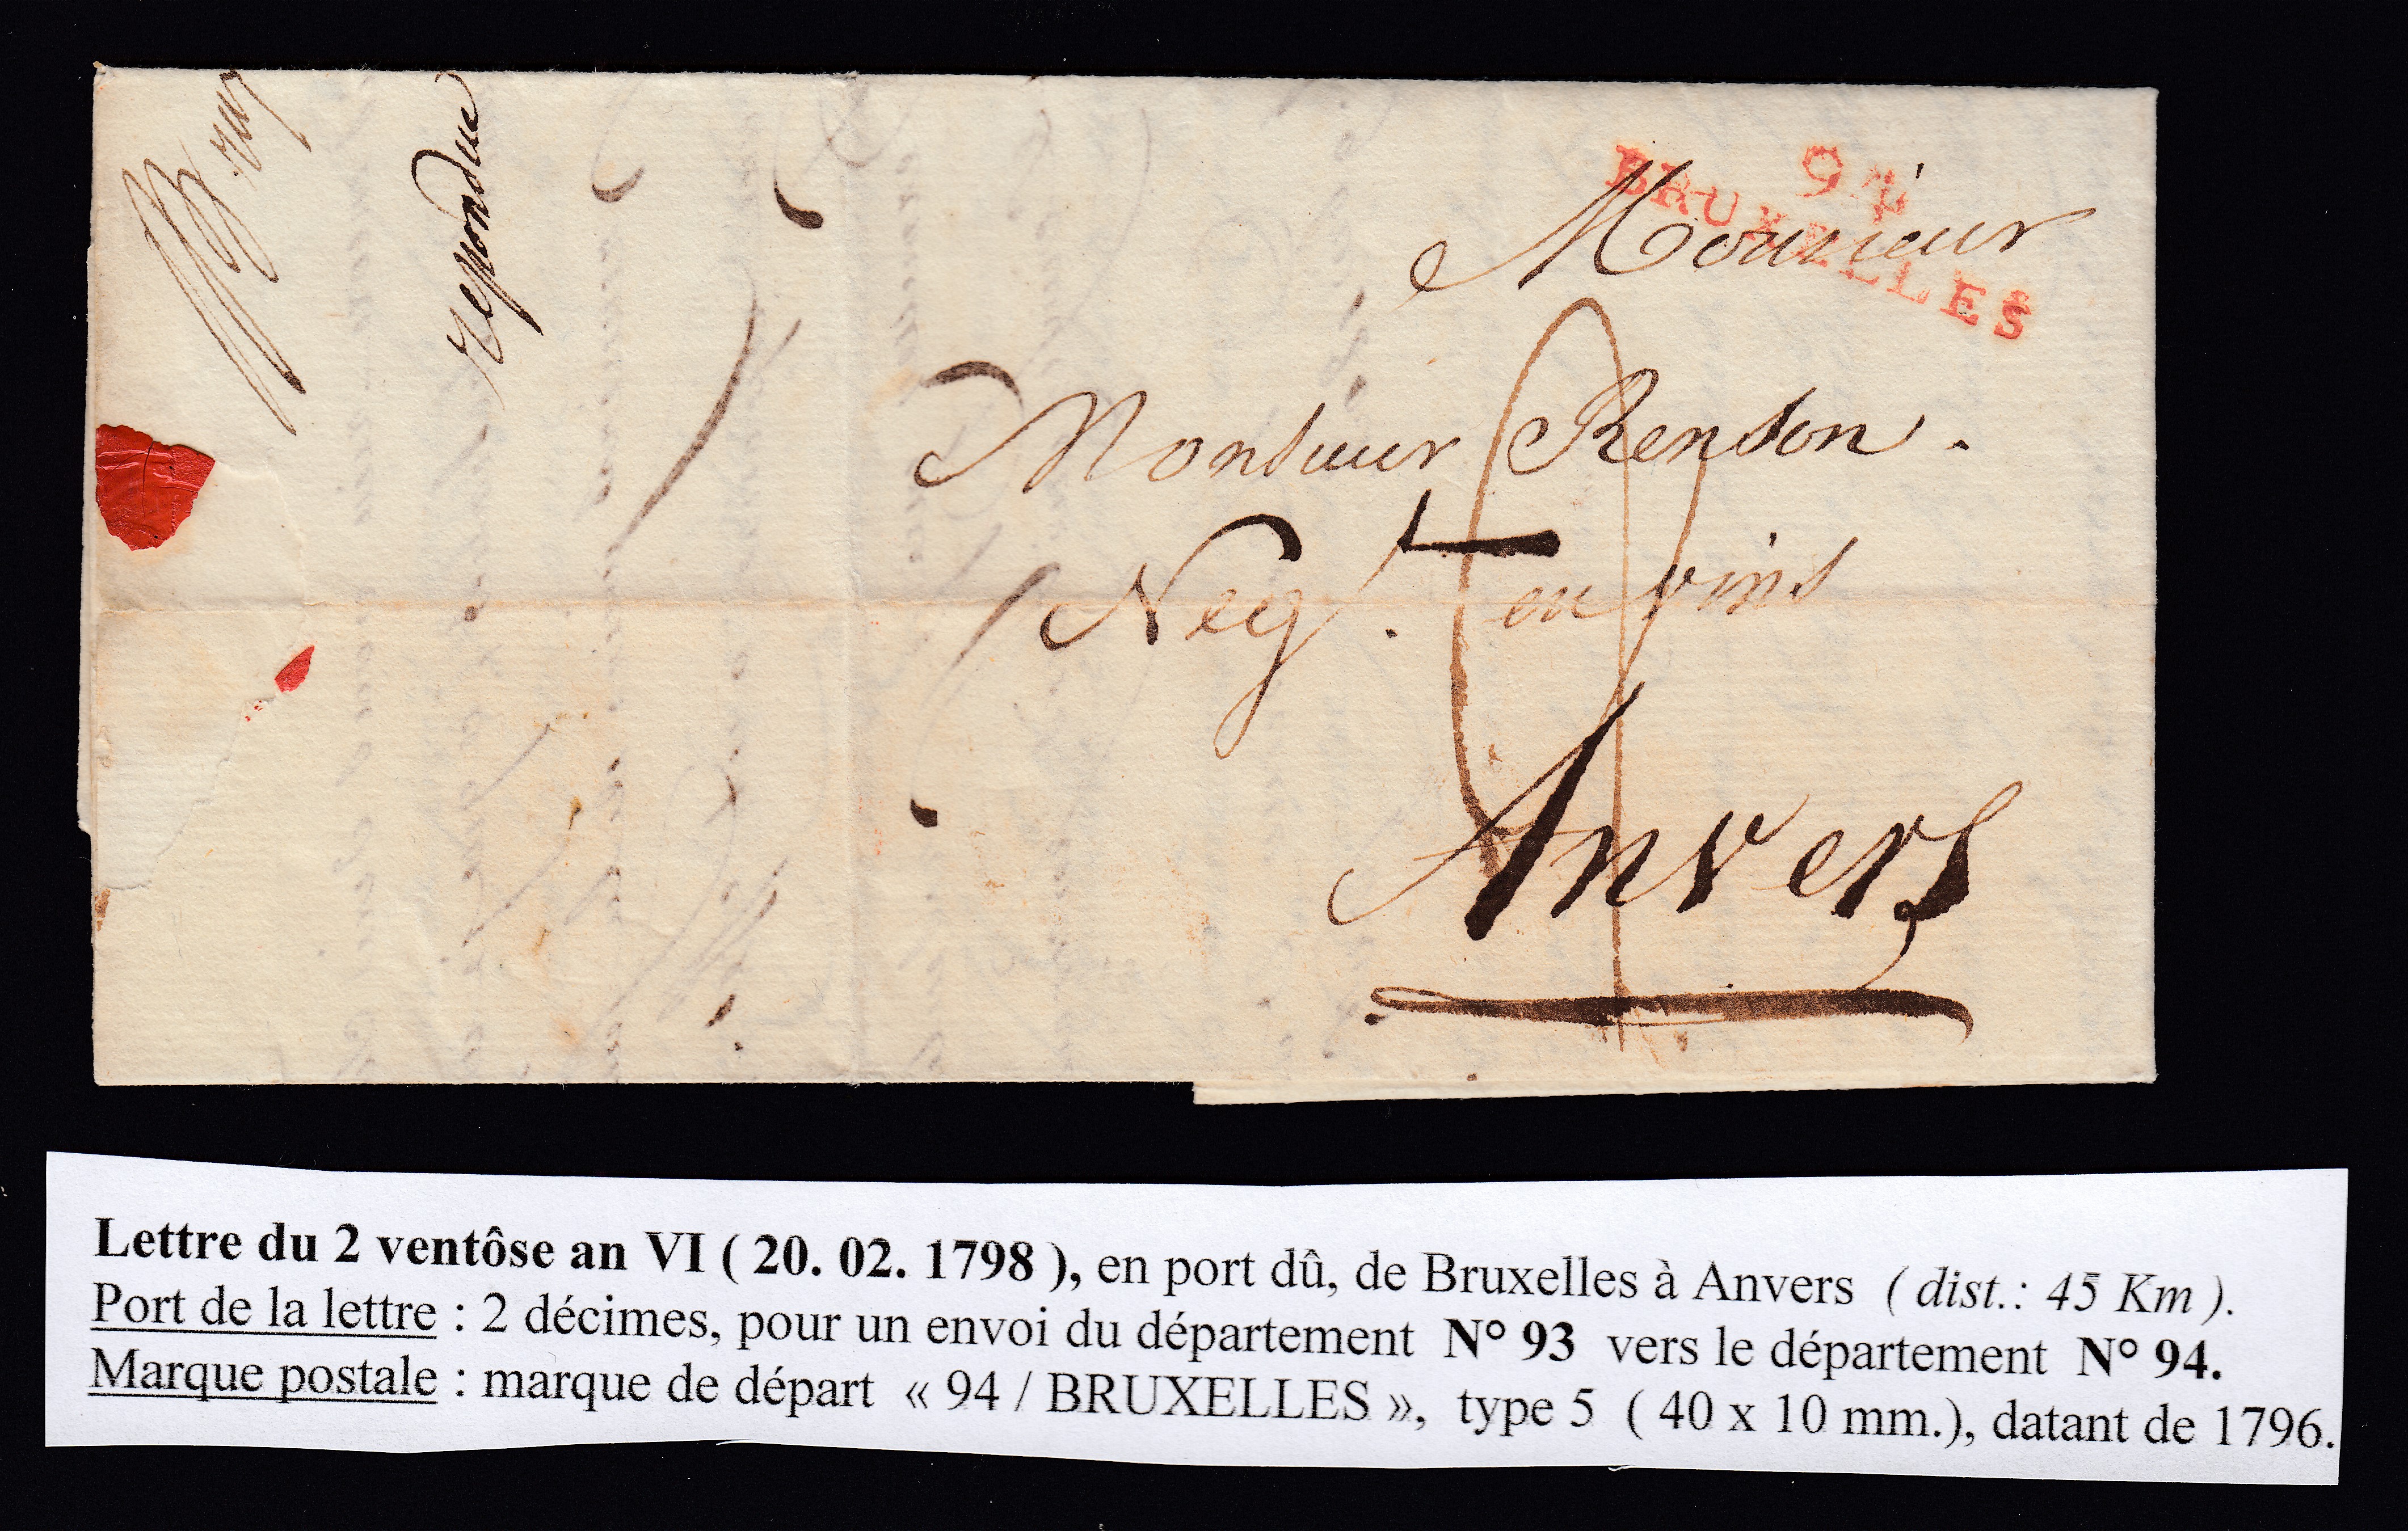 repondue
94
BRUXELLES
Monsieur
Monsieur Renson.
Neg.t en vins
Anvers
Lettre du 2 ventôse an VI ( 20. 02. 1798 ), en port dû, de Bruxelles à Anvers ( dist.: 45 Km ).
Port de la lettre : 2 décimes, pour un envoi du département N° 93 vers le département N° 94.
Marque postale : marque de départ « 94 / BRUXELLES », type 5 ( 40 x 10 mm.), datant de 1796.